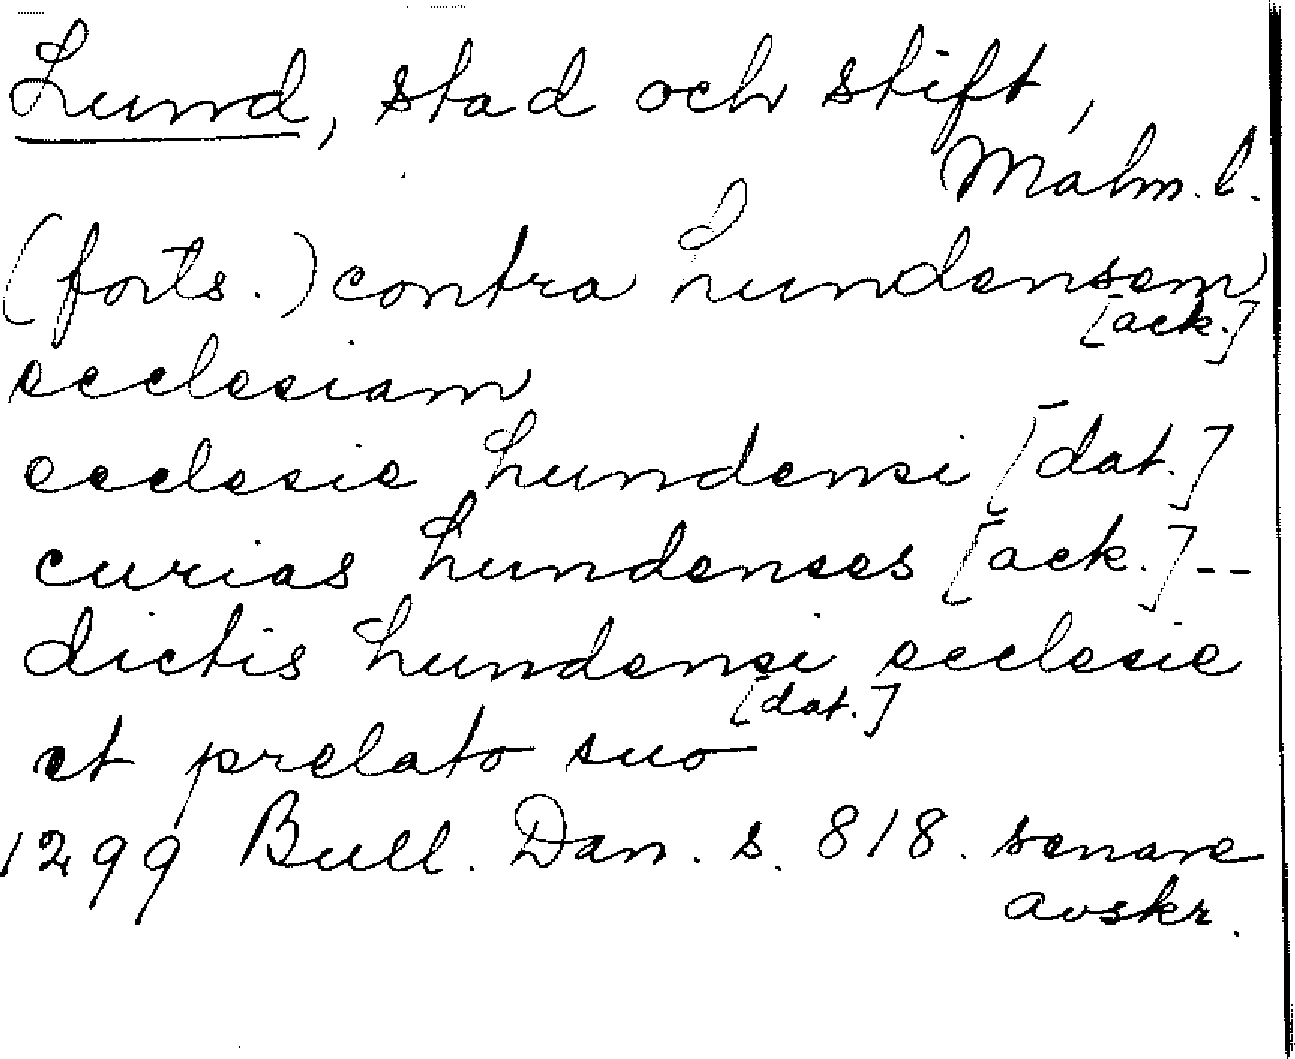 Lund, stad och stift,
Malm. l.
(forts.) contra Lundensem
[ack.]
ecclesiam
ecclesie Lundensi [dat.]
curias Lundenses [ack.] --
dictis Lundensi ecclesie
[dat.]
et prelato suo
1299 Bull. Dan. s. 818. senare
avskr.